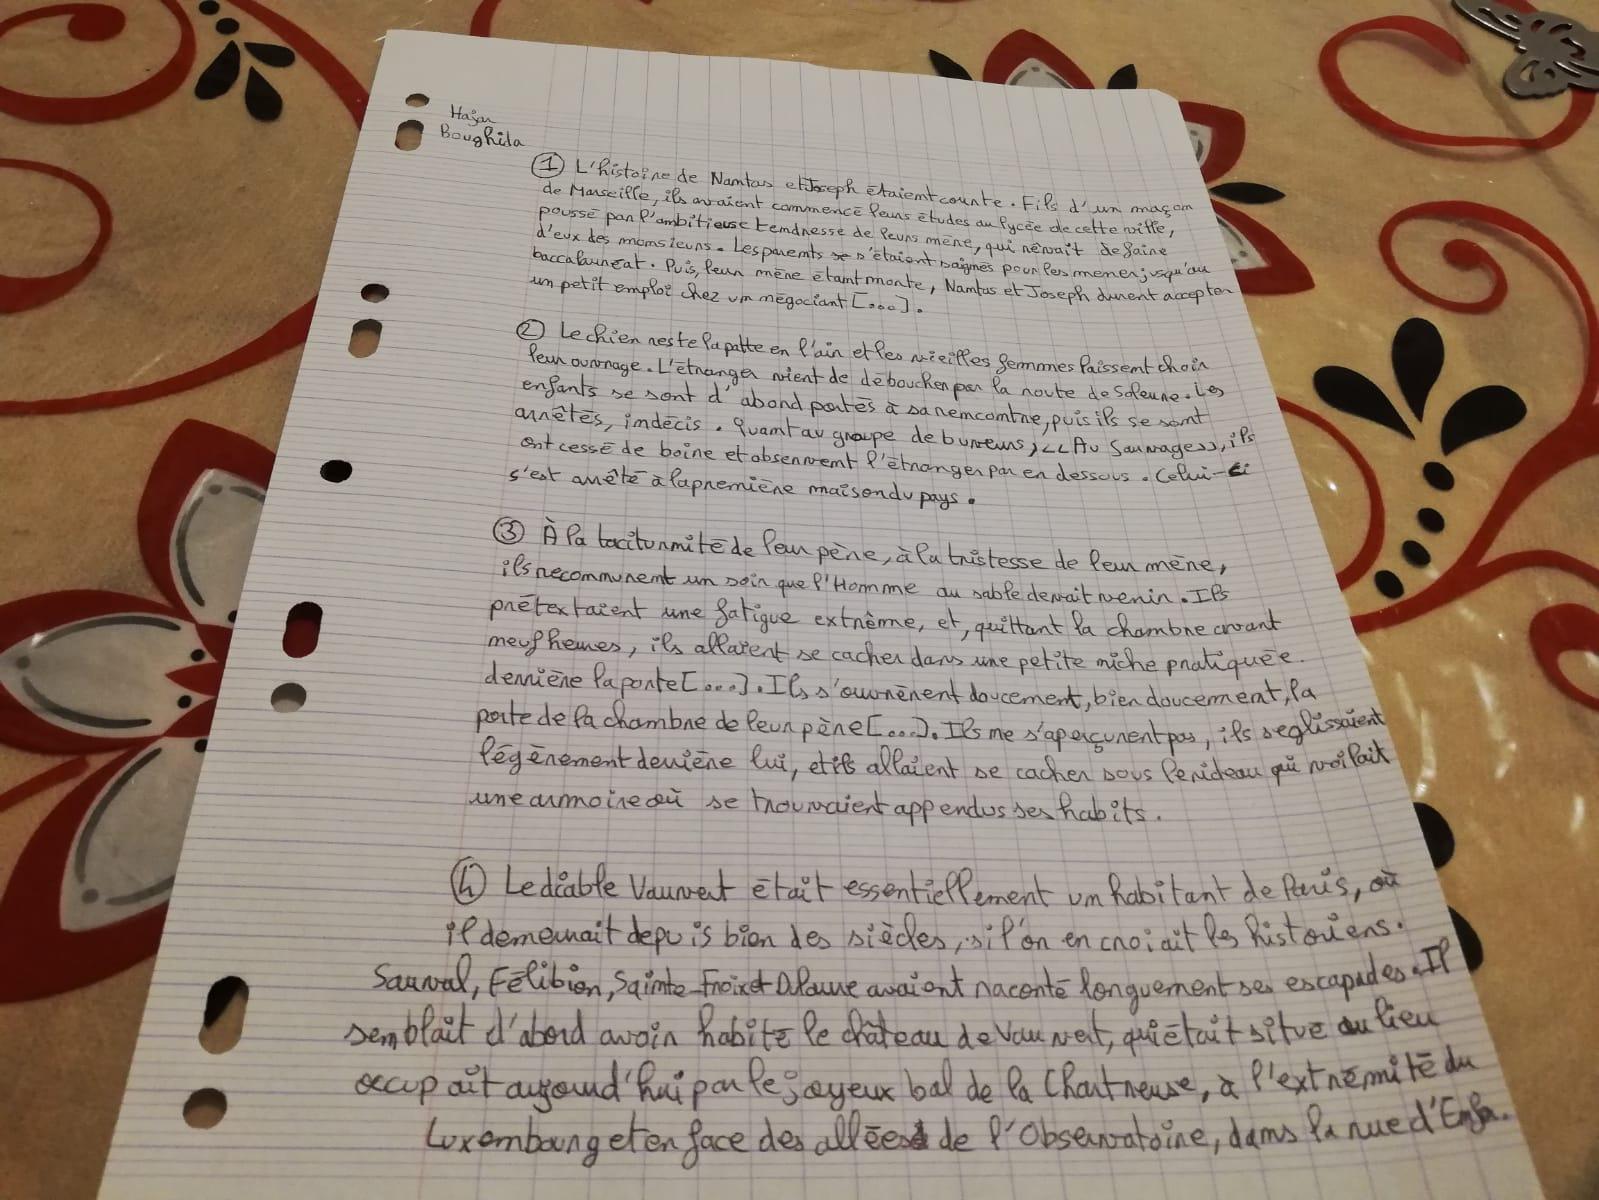 Hajar
Boughida
① L'histoire de Nantas et Joseph étaient courte. Fils d'un maçon
de Marseille, ils avaient commencé leurs études au lycée de cette ville,
poussé par l'ambitieuse tendresse de leurs mère, qui rêvait de faire
d'eux des monsieurs. Les parents se s'étaient saignés pour les mener jusqu'au
baccalauréat. Puis, leur mère étant morte, Nantas et Joseph durent accepter
un petit emploi chez un négociant [...].
② Le chien reste la patte en l'air et les vieilles femmes laissent choir
leur ouvrage. L'étranger vient de déboucher par la route de Soleure. Les
enfants se sont d'abord portés à sa rencontre, puis ils se sont
arrêtés, indécis. Quant au groupe de buveurs, << Au Sauvage >>, ils
ont cessé de boire et observent l'étranger par en dessous. Celui-ci
s'est arrêté à la première maison du pays.
③ À la taciturnité de leur père, à la tristesse de leur mère,
ils reconnurent un soir que l'Homme au sable devait venir. Ils
prétextaient une fatigue extrême, et, quittant la chambre avant
neuf heures, ils allaient se cacher dans une petite niche pratiquée.
derrière la porte [...]. Ils s'ouvrèrent doucement, bien doucement, la
porte de la chambre de leur père [...]. Ils ne s'aperçurent pas, ils se glissaient
légèrement derrière lui, et ils allaient se cacher sous le rideau qui voilait
une armoire où se trouvaient appendus ses habits.
④ Le diable Vauvert était essentiellement un habitant de Paris, où
il demeurait depuis bien des siècles, si l'on en croiait les historiens.
Sauval, Félibien, Sainte-Froix et Dulaure avaient raconté longuement ses escapades. Il
semblait d'abord avoir habité le château de Vauvert, qui était situé au lieu
occupait aujourd'hui par le joyeux bal de la Chartreuse, à l'extrémité du
Luxembourg et en face des allées de l'Observatoire, dans la rue d'Enfer.